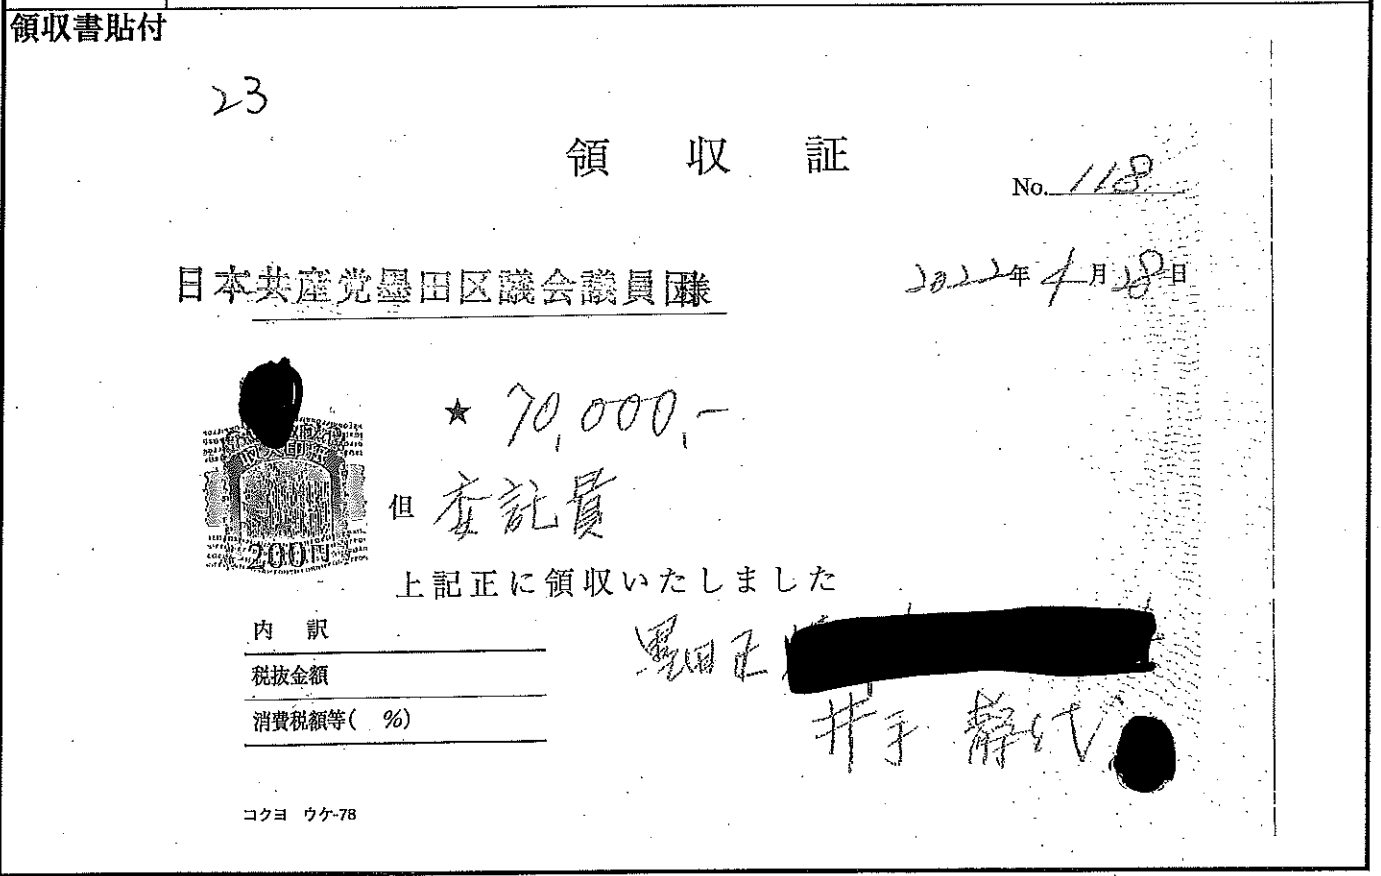 領収書貼付
23
領収証
No. 118
日本共産党墨田区議会議員団様
2022年4月28日
★ 70,000,-
但 委託費
上記正に領収いたしました
200円
内訳
税抜金額
消費税額等( %)
墨田区
井手 静代
コクヨ ウケ-78